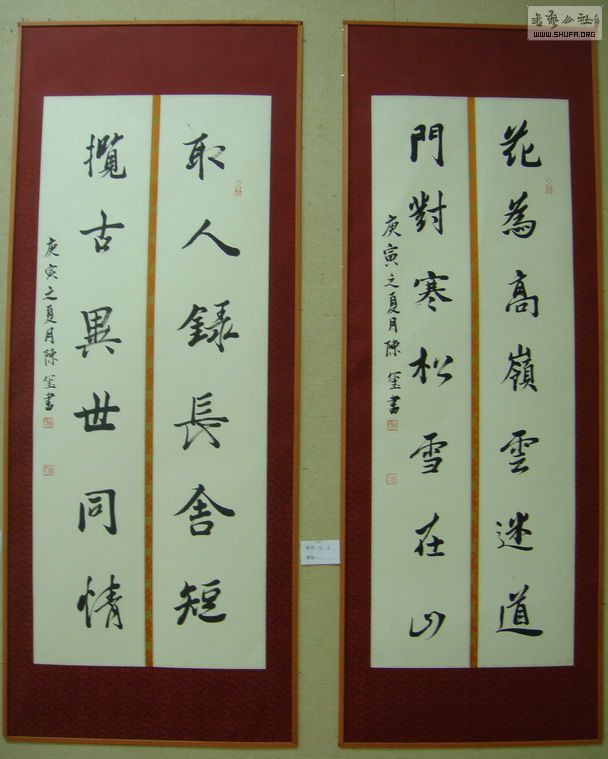 書藝公社
WWW.SHUFA.ORG
花為高嶺雲迷道
門對寒松雪在山
庚寅之夏月陳玺書
取人録長舍短
攬古異世同情
庚寅之夏月陳玺書